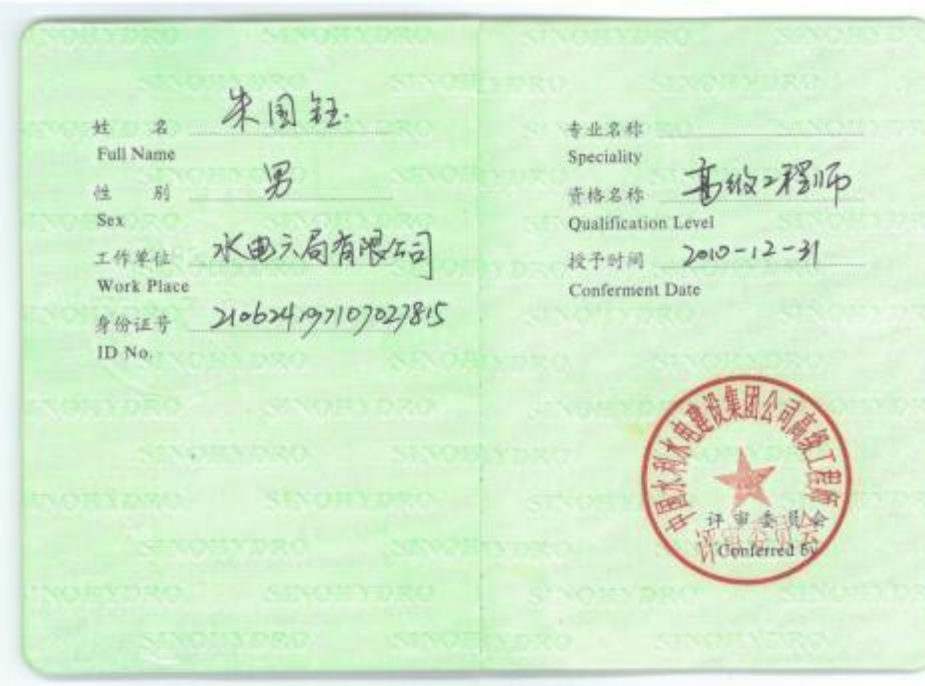 姓 名 朱国钰
Full Name
性 别 男
Sex
工作单位 水电六局有限公司
Work Place
身份证号 210624197107027815
ID No.
专业名称
Speciality
资格名称 高级工程师
Qualification Level
授予时间 2010-12-31
Conferment Date
中国水利水电建设集团公司高级工程师
评审委员会
评审委员会
Conferred by
SINOHYDRO